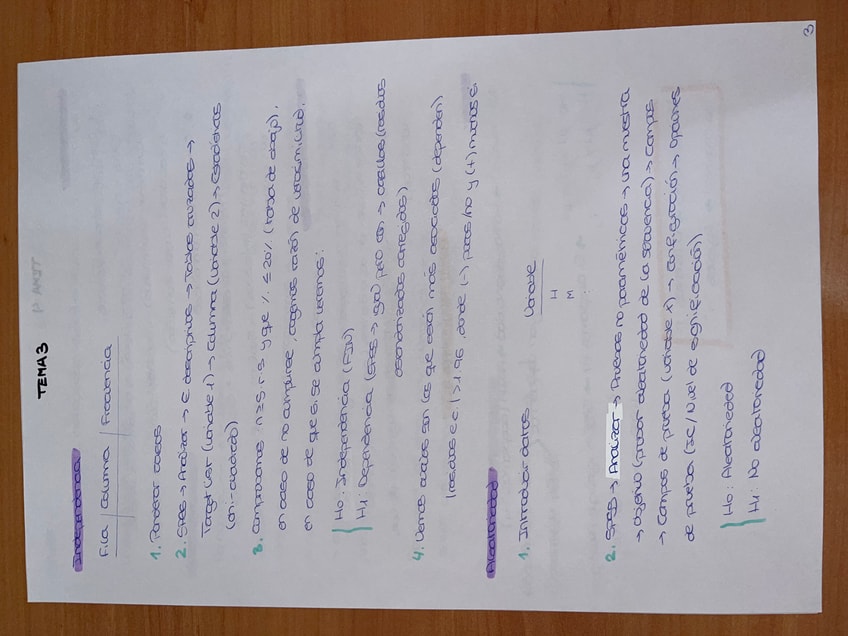 TEMA 3
Independencia
Fila | Columna | Frecuencia
1. Ponderar casos
2. SPSS → Analizar → E. descriptivos → Tablas cruzadas →
Target var (variable 1) → Columna (variable 2) → Estadísticas
(chi-cuadrado)
3. Comprobamos n ≥ 5 y que % ≤ 20% (tabla de abajo),
en caso de no cumplirse, cogemos razón de verosimilitud,
en caso de que si se cumpla veremos:
H0: Independencia (FIN)
H1: Dependencia → casillas (residuos
estandarizados corregidos)
4. Vemos cuales son las que están más asociadas (dependen)
|residuos e.c.| > 1.96, donde (-) pocos ho y (+) muchos si.
Aleatoriedad
1. Introducir datos
Variable
H
M
:
2. SPSS → Analizar → Pruebas no paramétricas → una muestra
→ Objetivo (probar aleatoriedad de la secuencia) → Campos
→ Campos de prueba (variable 1) → Configuración → Opciones
de prueba (IC / Nivel de significación)
H0: Aleatoriedad
H1: No aleatoriedad
3